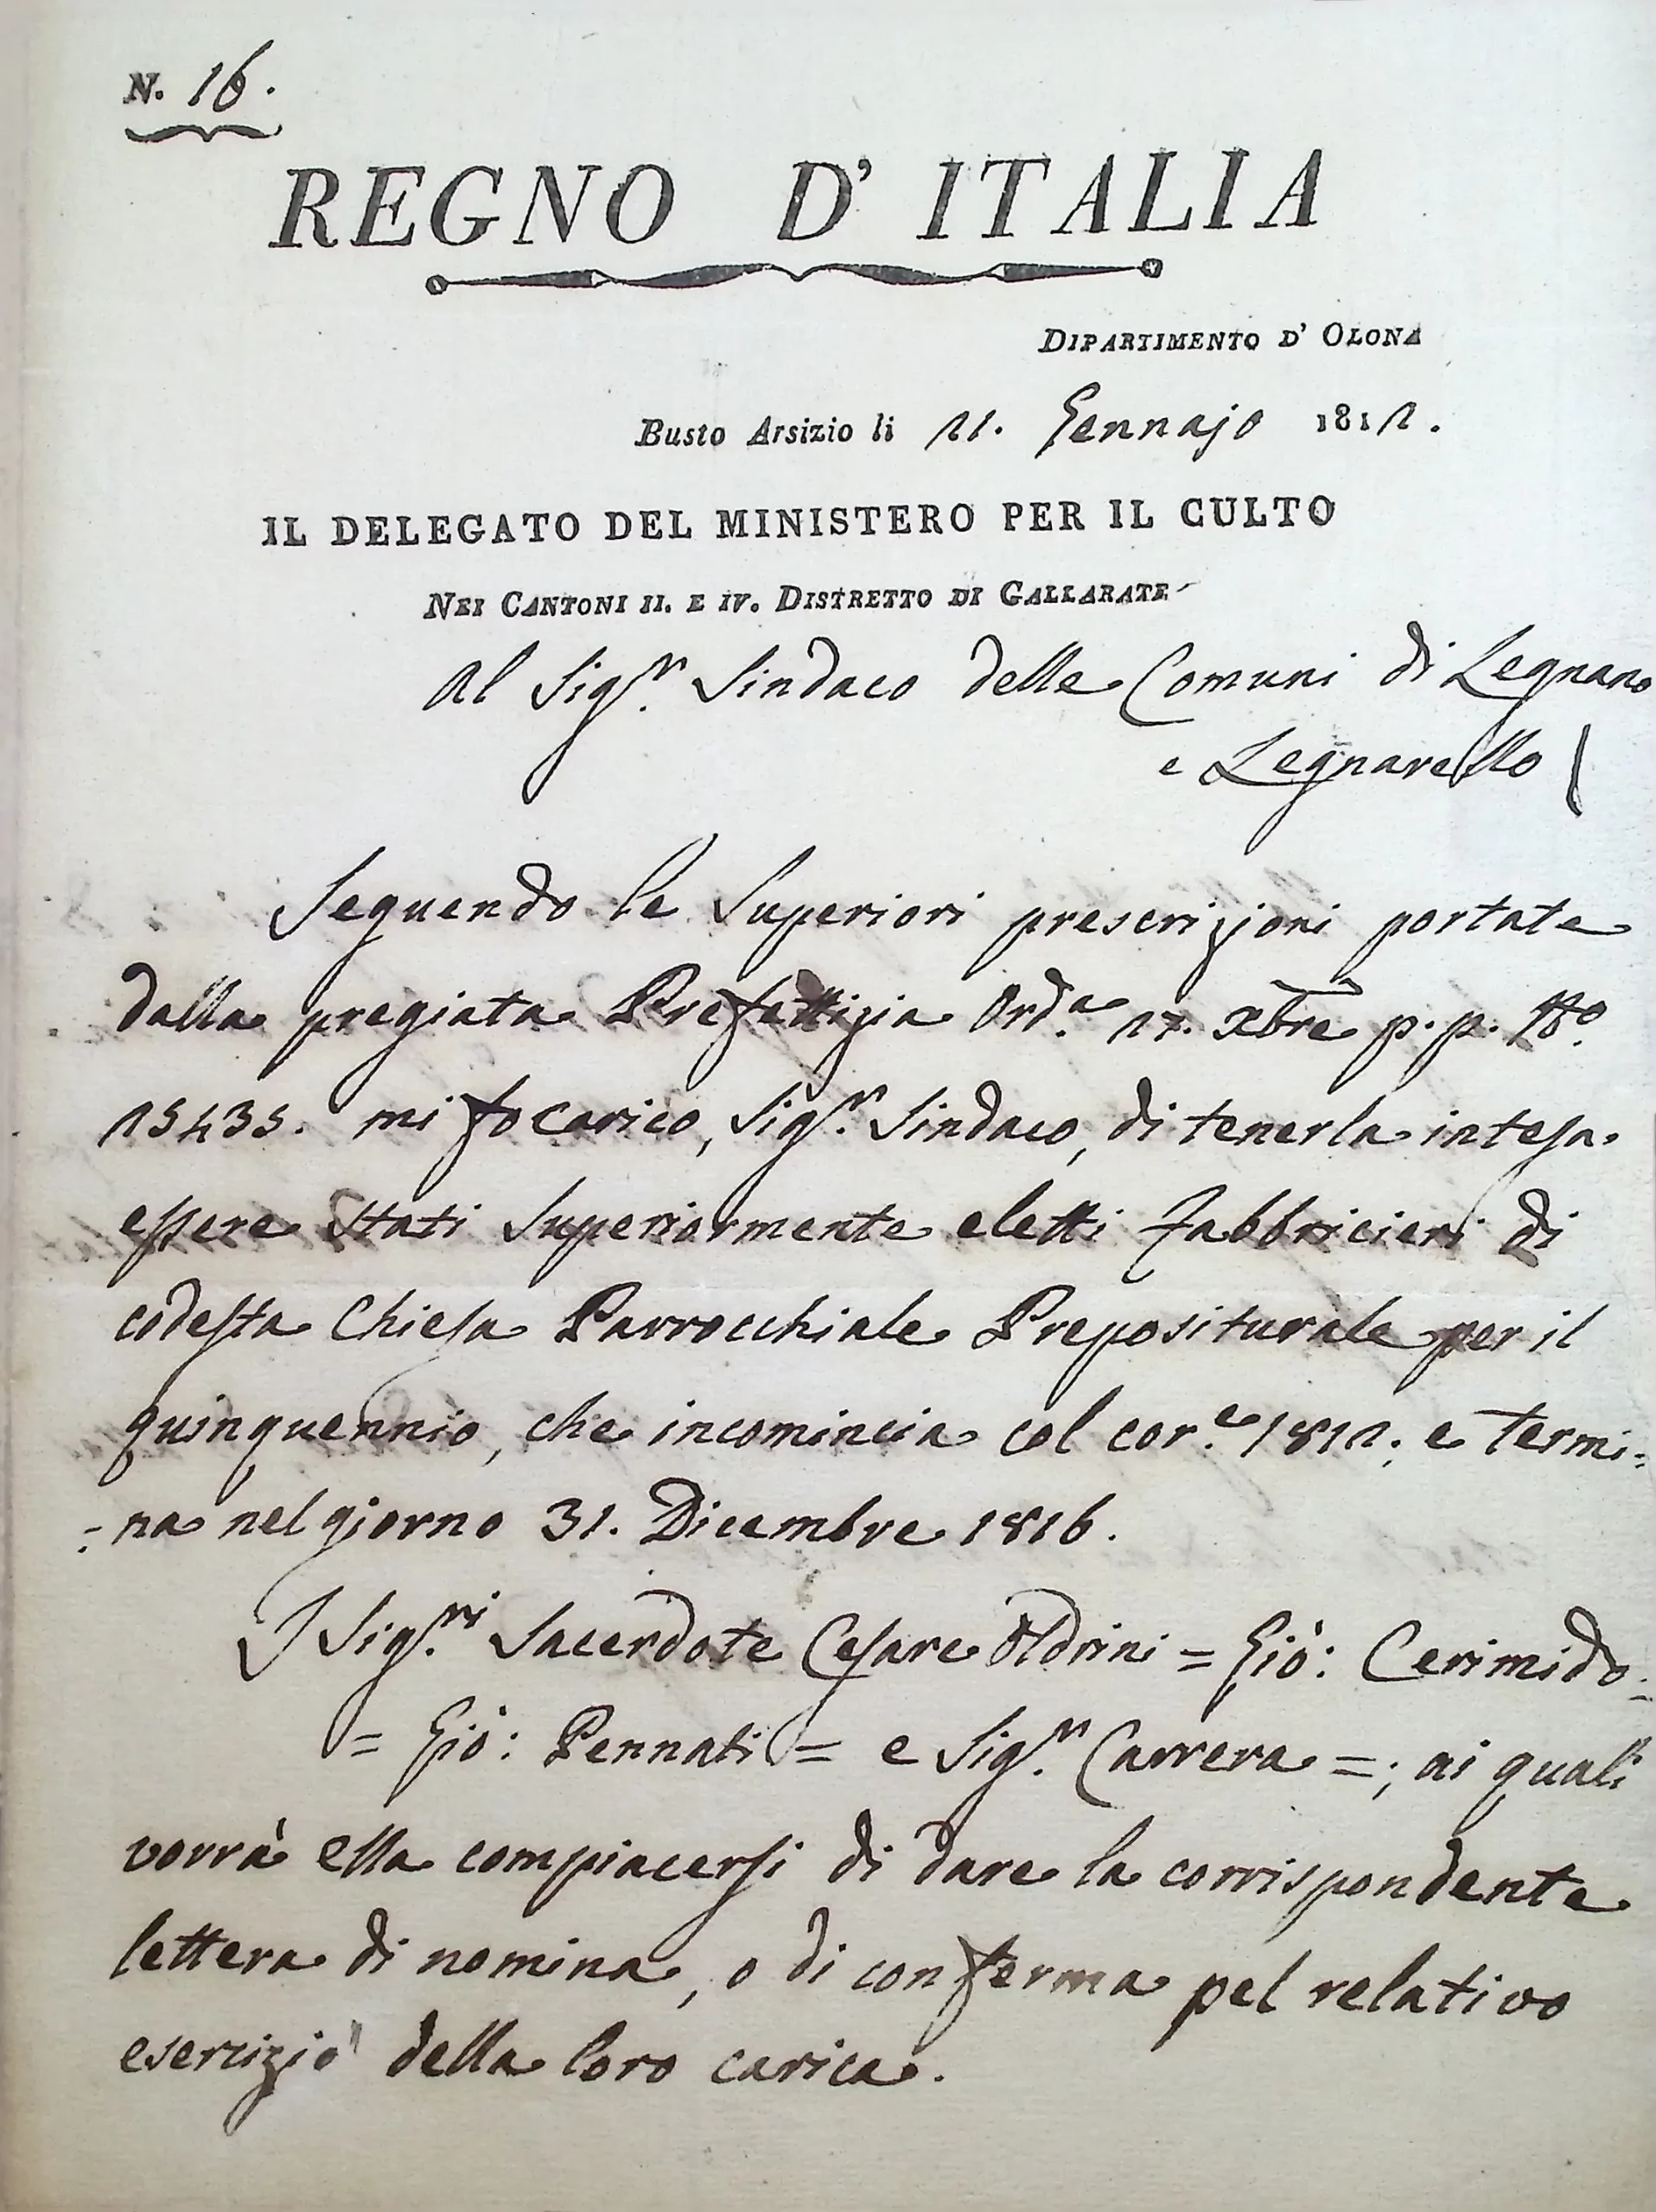 N. 16.
REGNO D' ITALIA
DIPARTIMENTO D' OLONA
Busto Arsizio li 11. Gennajo 1812.
IL DELEGATO DEL MINISTERO PER IL CULTO
NEI CANTONI II. E IV. DISTRETTO DI GALLARATE
Al Sigr. Sindaco delle Comuni di Legnano
e Legnarello
Seguendo le Superiori prescrizioni portate
dalla pregiata Prefettizia Orda. 17. Xbre p. p. No.
15435. mi fo carico, Sigr. Sindaco, di tenerla intesa
essere stati Superiormente eletti Fabbricieri di
codesta Chiesa Parrocchiale Prepositurale per il
quinquennio, che incomincia col core. 1812; e termi=
=na nel giorno 31. Dicembre 1816.
I Sigri. Sacerdote Cesare Oldrini = Giò: Cerimido
= Giò: Pennati = e Sigr. Carrera =; ai quali
vorrà ella compiacersi di dare la corrispondente
lettera di nomina, o di conferma pel relativo
esercizio della loro carica.